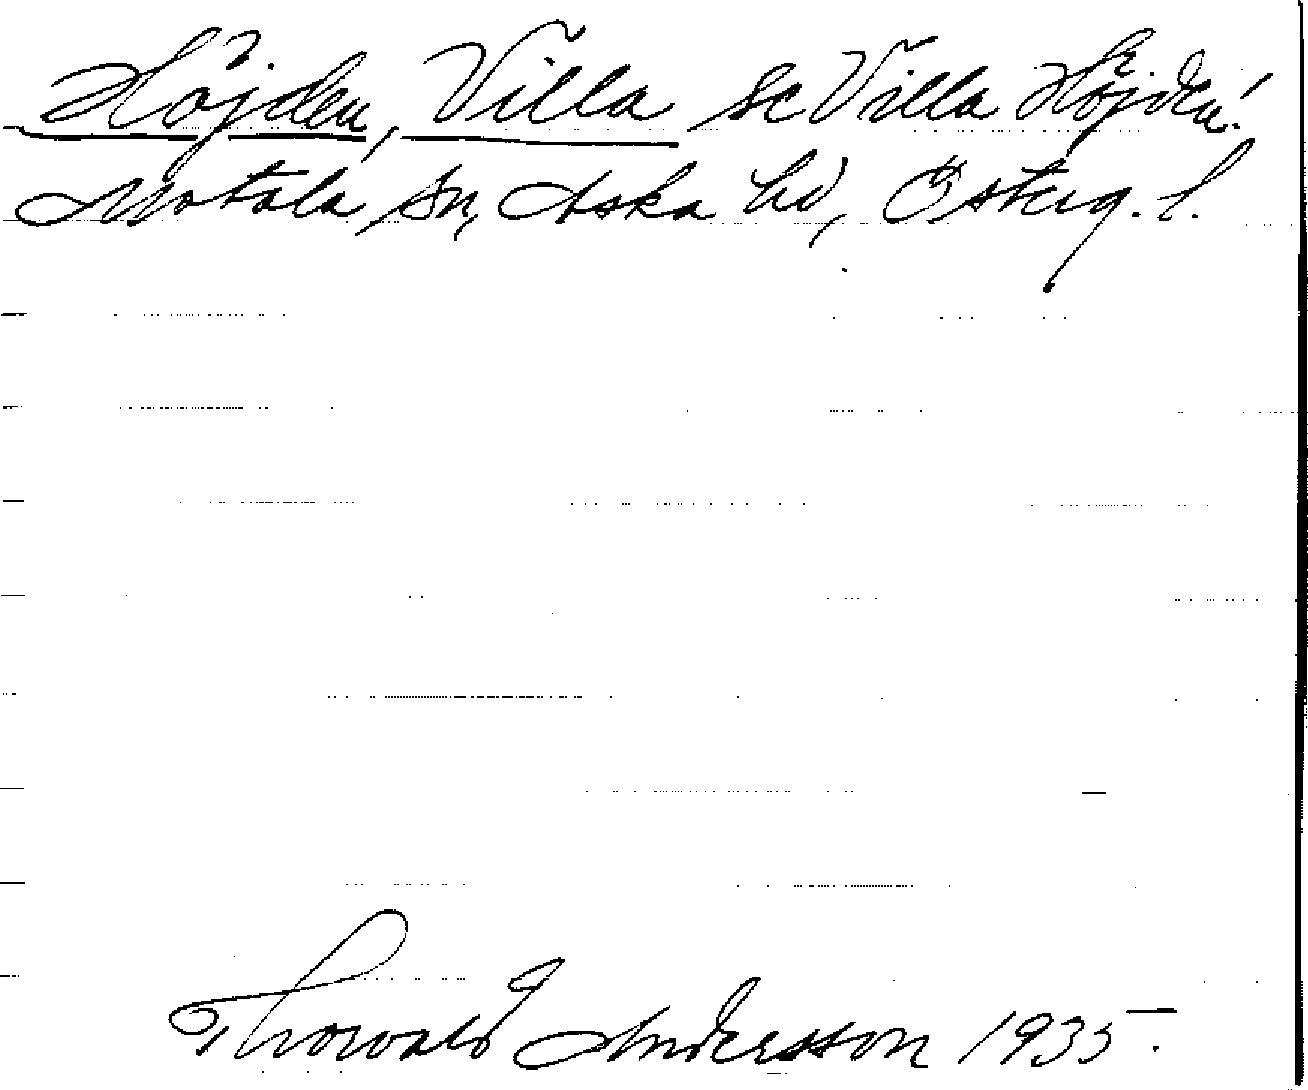 Höjden, Villa se Villa Höjden!
Motala sn, Aska hd, Österg. l.
Thorvald Andersson 1935.